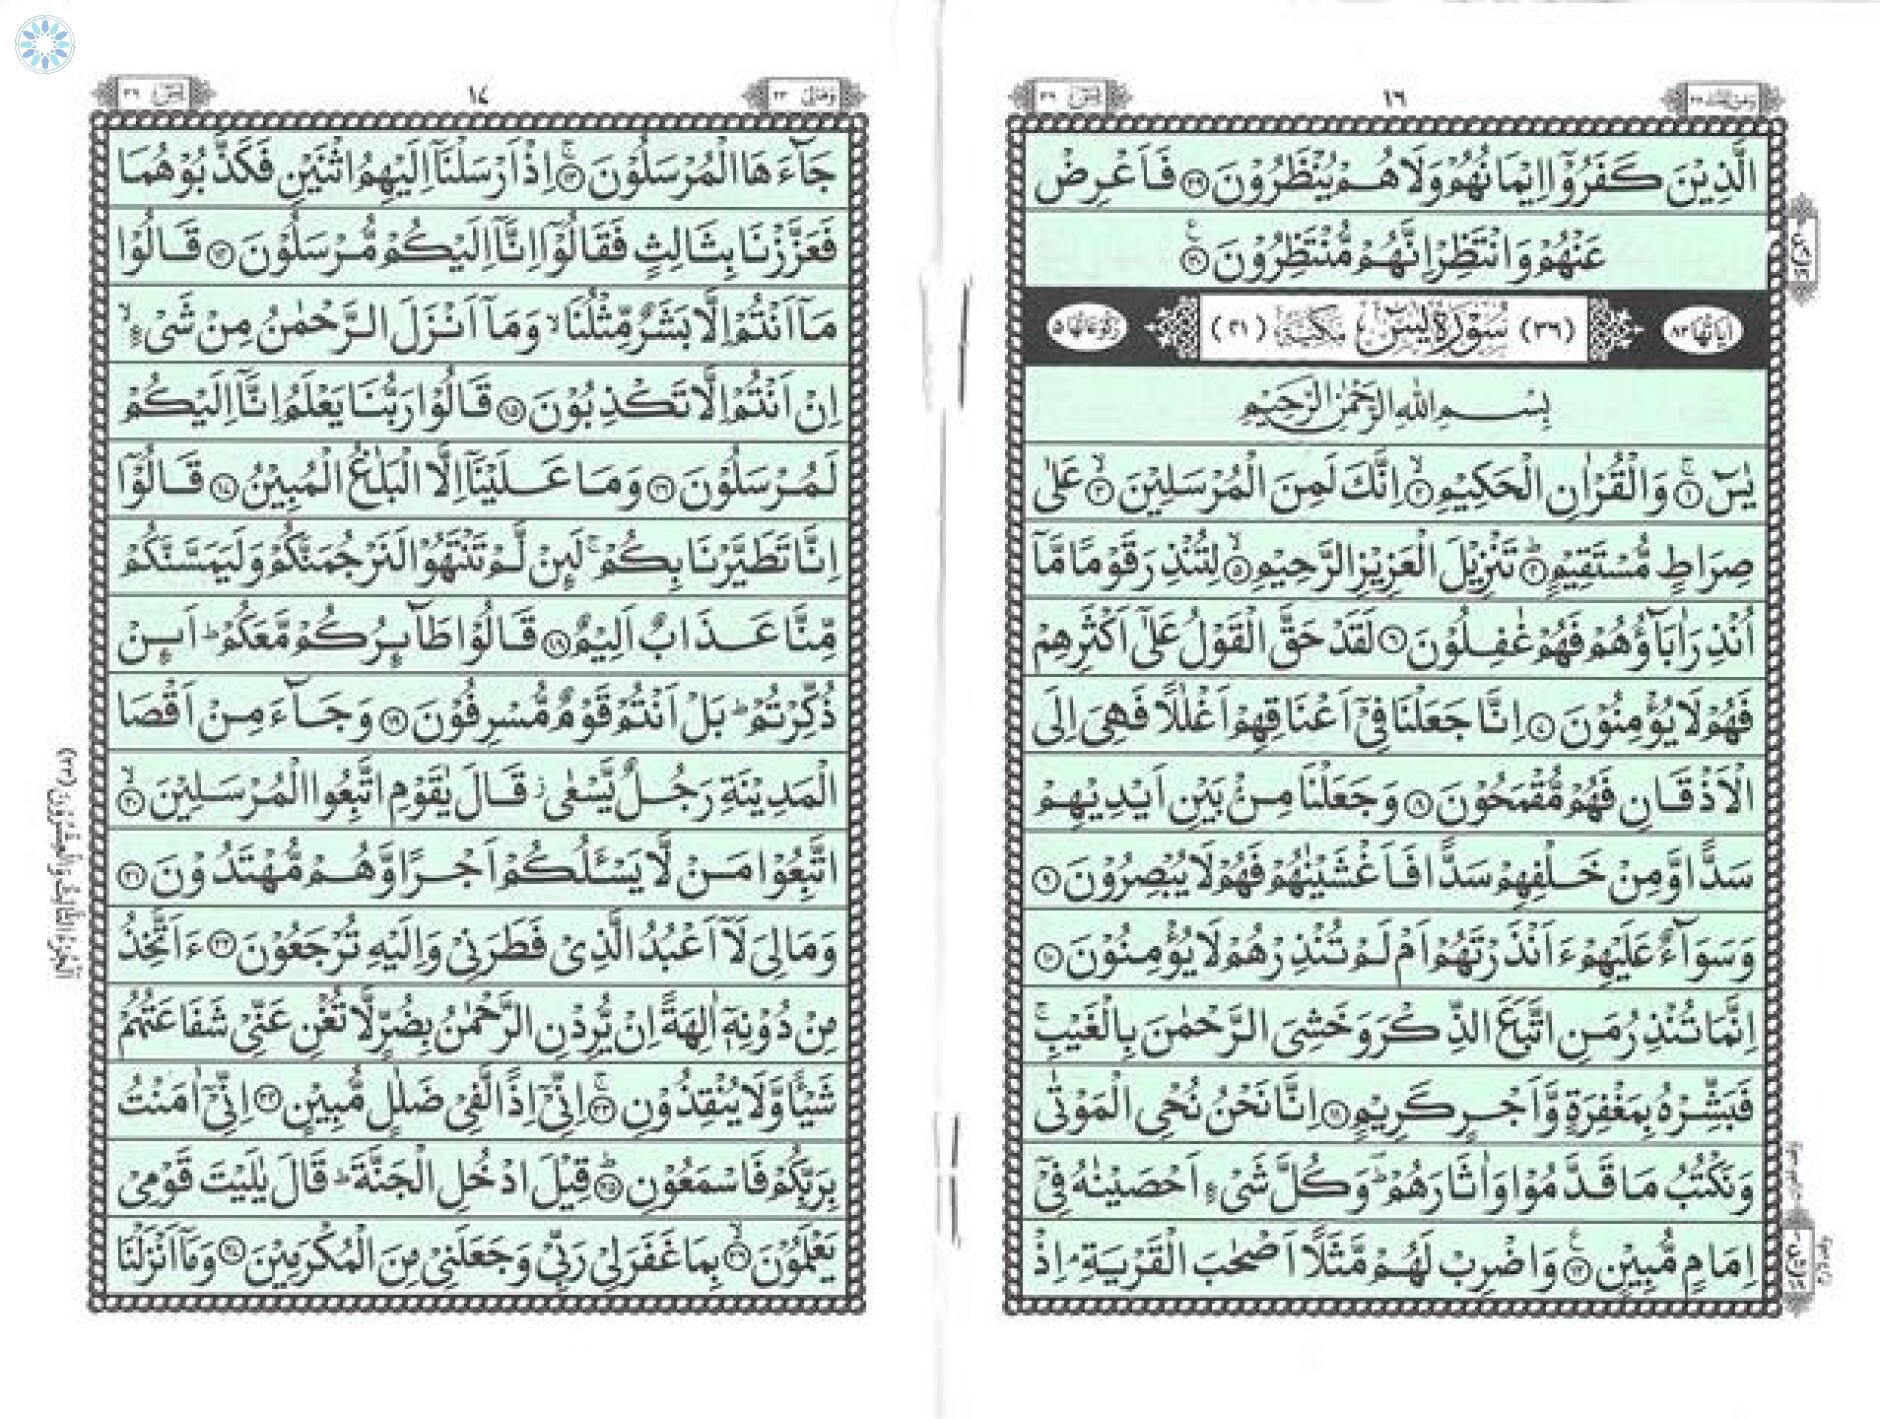 ١٦
الَّذِيْنَ كَفَرُوْٓا اِيْمَانُهُمْ وَلَا هُمْ يُنْظَرُوْنَ ۝٢٩ فَاَعْرِضْ
عَنْهُمْ وَانْتَظِرْ اِنَّهُمْ مُّنْتَظِرُوْنَ ۝٣٠
اٰيَاتُهَا ٨٣ (٣٦) سُوْرَةُ يٰسٓ مَكِّيَّةٌ (٤١) رُكُوْعَاتُهَا ٥
بِسْمِ اللهِ الرَّحْمٰنِ الرَّحِيْمِ
يٰسٓ ۝١ وَالْقُرْاٰنِ الْحَكِيْمِ ۝٢ اِنَّكَ لَمِنَ الْمُرْسَلِيْنَ ۝٣ عَلٰى
صِرَاطٍ مُّسْتَقِيْمٍ ۝٤ تَنْزِيْلَ الْعَزِيْزِ الرَّحِيْمِ ۝٥ لِتُنْذِرَ قَوْمًا مَّآ
اُنْذِرَ اٰبَآؤُهُمْ فَهُمْ غٰفِلُوْنَ ۝٦ لَقَدْ حَقَّ الْقَوْلُ عَلٰٓى اَكْثَرِهِمْ
فَهُمْ لَا يُؤْمِنُوْنَ ۝٧ اِنَّا جَعَلْنَا فِيْٓ اَعْنَاقِهِمْ اَغْلٰلًا فَهِيَ اِلَى
الْاَذْقَانِ فَهُمْ مُّقْمَحُوْنَ ۝٨ وَجَعَلْنَا مِنْۢ بَيْنِ اَيْدِيْهِمْ
سَدًّا وَّمِنْ خَلْفِهِمْ سَدًّا فَاَغْشَيْنٰهُمْ فَهُمْ لَا يُبْصِرُوْنَ ۝٩
وَسَوَآءٌ عَلَيْهِمْ ءَاَنْذَرْتَهُمْ اَمْ لَمْ تُنْذِرْهُمْ لَا يُؤْمِنُوْنَ ۝١٠
اِنَّمَا تُنْذِرُ مَنِ اتَّبَعَ الذِّكْرَ وَخَشِيَ الرَّحْمٰنَ بِالْغَيْبِ ۚ
فَبَشِّرْهُ بِمَغْفِرَةٍ وَّاَجْرٍ كَرِيْمٍ ۝١١ اِنَّا نَحْنُ نُحْيِ الْمَوْتٰى
وَنَكْتُبُ مَا قَدَّمُوْا وَاٰثَارَهُمْ ؕ وَكُلَّ شَيْءٍ اَحْصَيْنٰهُ فِيْٓ
اِمَامٍ مُّبِيْنٍ ۝١٢ وَاضْرِبْ لَهُمْ مَّثَلًا اَصْحٰبَ الْقَرْيَةِ ۘ اِذْ
يٰسٓ ٣٦
١٧
وَمَالِيَ ٢٣
جَآءَهَا الْمُرْسَلُوْنَ ۝١٣ اِذْ اَرْسَلْنَآ اِلَيْهِمُ اثْنَيْنِ فَكَذَّبُوْهُمَا
فَعَزَّزْنَا بِثَالِثٍ فَقَالُوْٓا اِنَّآ اِلَيْكُمْ مُّرْسَلُوْنَ ۝١٤ قَالُوْا
مَآ اَنْتُمْ اِلَّا بَشَرٌ مِّثْلُنَا ۙ وَمَآ اَنْزَلَ الرَّحْمٰنُ مِنْ شَيْءٍ ۙ
اِنْ اَنْتُمْ اِلَّا تَكْذِبُوْنَ ۝١٥ قَالُوْا رَبُّنَا يَعْلَمُ اِنَّآ اِلَيْكُمْ
لَمُرْسَلُوْنَ ۝١٦ وَمَا عَلَيْنَآ اِلَّا الْبَلٰغُ الْمُبِيْنُ ۝١٧ قَالُوْٓا
اِنَّا تَطَيَّرْنَا بِكُمْ ۚ لَئِنْ لَّمْ تَنْتَهُوْا لَنَرْجُمَنَّكُمْ وَلَيَمَسَّنَّكُمْ
مِّنَّا عَذَابٌ اَلِيْمٌ ۝١٨ قَالُوْا طَآئِرُكُمْ مَّعَكُمْ ؕ اَئِنْ
ذُكِّرْتُمْ ؕ بَلْ اَنْتُمْ قَوْمٌ مُّسْرِفُوْنَ ۝١٩ وَجَآءَ مِنْ اَقْصَا
الْمَدِيْنَةِ رَجُلٌ يَّسْعٰى ز قَالَ يٰقَوْمِ اتَّبِعُوا الْمُرْسَلِيْنَ ۝٢٠
اتَّبِعُوْا مَنْ لَّا يَسْـَٔلُكُمْ اَجْرًا وَّهُمْ مُّهْتَدُوْنَ ۝٢١
وَمَا لِيَ لَآ اَعْبُدُ الَّذِيْ فَطَرَنِيْ وَاِلَيْهِ تُرْجَعُوْنَ ۝٢٢ ءَاَتَّخِذُ
مِنْ دُوْنِهٖٓ اٰلِهَةً اِنْ يُّرِدْنِ الرَّحْمٰنُ بِضُرٍّ لَّا تُغْنِ عَنِّيْ شَفَاعَتُهُمْ
شَيْـًٔا وَّلَا يُنْقِذُوْنِ ۝٢٣ اِنِّيْٓ اِذًا لَّفِيْ ضَلٰلٍ مُّبِيْنٍ ۝٢٤ اِنِّيْٓ اٰمَنْتُ
بِرَبِّكُمْ فَاسْمَعُوْنِ ۝٢٥ قِيْلَ ادْخُلِ الْجَنَّةَ ؕ قَالَ يٰلَيْتَ قَوْمِيْ
يَعْلَمُوْنَ ۝٢٦ بِمَا غَفَرَ لِيْ رَبِّيْ وَجَعَلَنِيْ مِنَ الْمُكْرَمِيْنَ ۝٢٧ وَمَآ اَنْزَلْنَا